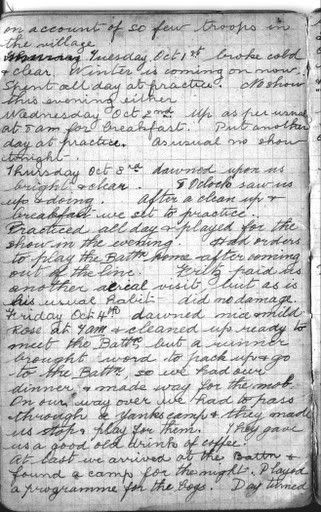 on account of so few troops in
the village
Tuesday Oct 1st broke cold
& clear. Winter is coming on now.
Spent all day at practice. No show
this evening either
Wednesday Oct 2nd Up as per usual
at 8 am for breakfast. Put another
day at practice. As usual no show
tonight.
Thursday Oct 3rd dawned upon us
bright & clear. 8 Oclock saw us
up & doing. After a clean up &
breakfast we set to practice.
Practiced all day & played for the
show in the evening. Had orders
to play the Battn home after coming
out of the line. Fritz paid us
another aerial visit but as is
his usual habit did no damage.
Friday Oct 4th dawned nice & mild
Rose at 7am & cleaned up ready to
meet the Battn, but a runner
brought word to pack up & go
to the Battn so we had our
dinner & made way for the mob.
On our way over we had to pass
through a Yankee camp & they made
us stop & play for them. They gave
us a good old drink of coffee.
At last we arrived at the Battn &
found a camp for the night. Played
a programme for the boys. Day turned